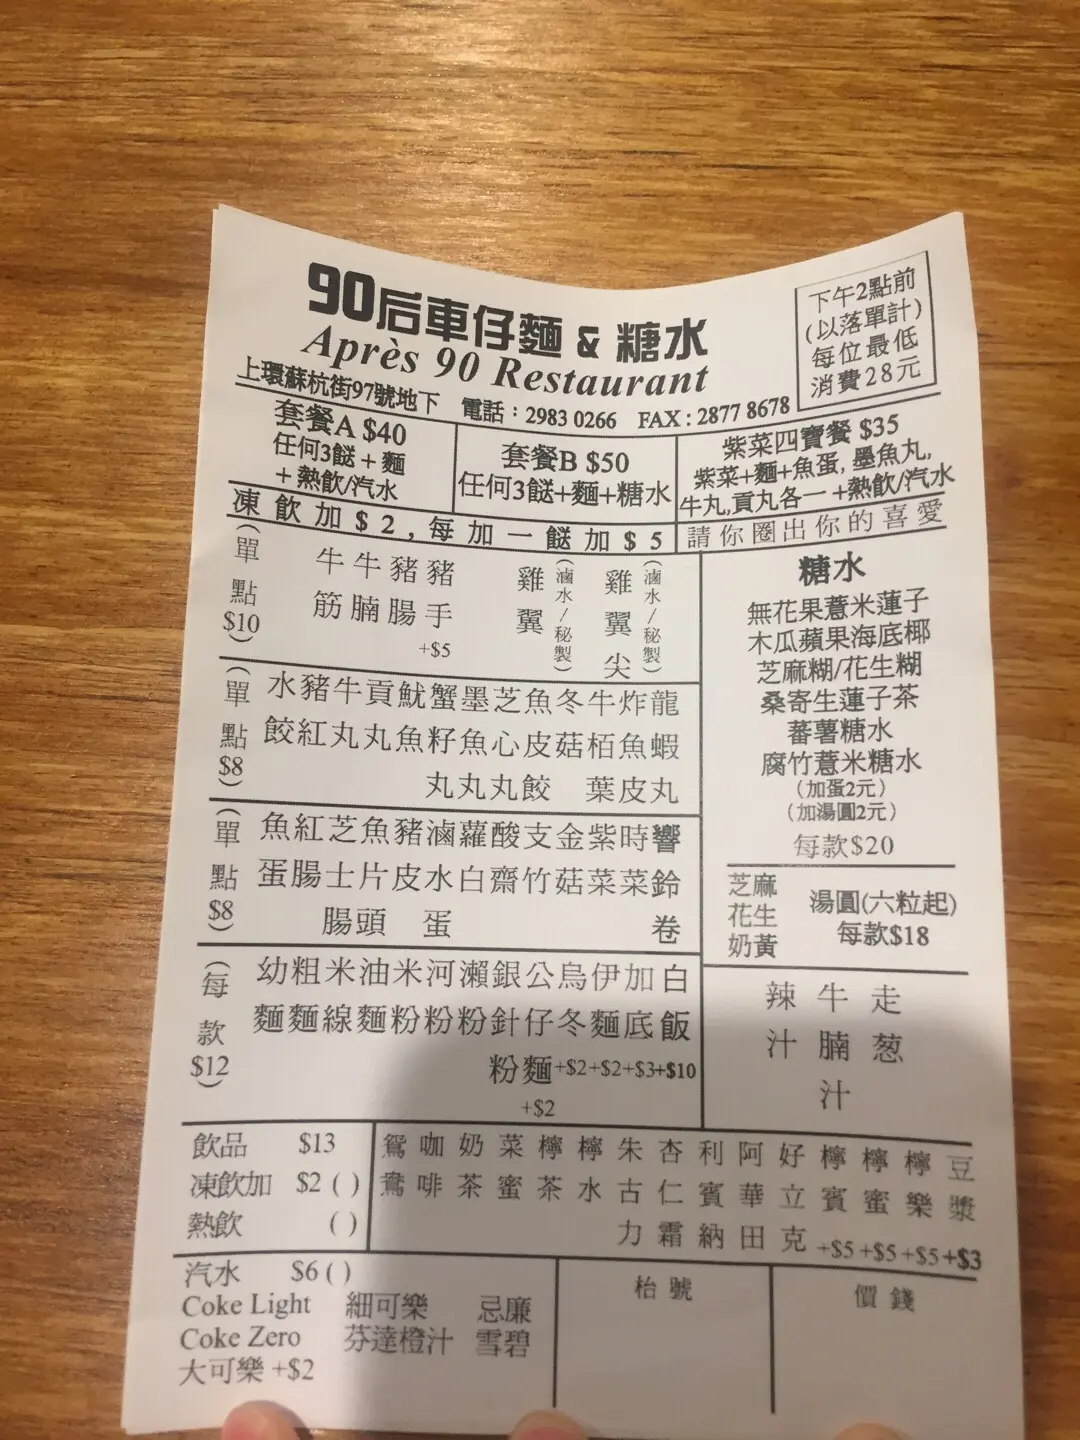 90后車仔麵 & 糖水
Après 90 Restaurant
上環蘇杭街97號地下 電話：2983 0266 FAX : 2877 8678
下午2點前
(以落單計)
每位最低
消費28元
套餐A $40
任何3餸 + 麵
+ 熱飲/汽水
套餐B $50
任何3餸+麵+糖水
紫菜四寶餐 $35
紫菜+麵+魚蛋, 墨魚丸,
牛丸,貢丸各一 +熱飲/汽水
凍飲加$2,每加一餸加$5
請你圈出你的喜愛
(單點$10)
牛筋
牛腩
豬腸
豬手+$5
雞翼(滷水/秘製)
雞翼尖(滷水/秘製)
(單點$8)
水餃
豬紅
牛丸
貢丸
魷魚
蟹籽丸
墨魚丸
芝心丸
魚皮餃
冬菇
牛栢葉
炸魚皮
龍蝦丸
(單點$8)
魚蛋
紅腸
芝士腸
魚片頭
豬皮
滷水蛋
蘿白
酸齋
支竹
金菇
紫菜
時菜
響鈴卷
(每款$12)
幼麵
粗麵
米線
油麵
米粉
河粉
瀨粉
銀針粉
公仔麵+$2
烏冬+$2
伊麵+$2
加底+$3
白飯+$10
糖水
無花果薏米蓮子
木瓜蘋果海底椰
芝麻糊/花生糊
桑寄生蓮子茶
蕃薯糖水
腐竹薏米糖水
(加蛋2元)
(加湯圓2元)
每款$20
芝麻
花生
奶黃
湯圓(六粒起)
每款$18
辣汁
牛腩汁
走葱
飲品 $13
凍飲加 $2 ( )
熱飲 ( )
鴛鴦
咖啡
奶茶
菜蜜
檸茶
檸水
朱古力
杏仁霜
利賓納
阿華田
好立克
檸賓+$5
檸蜜+$5
檸樂+$5
豆漿+$3
汽水 $6 ( )
Coke Light 細可樂 忌廉
Coke Zero 芬達橙汁 雪碧
大可樂 +$2
枱號
價錢